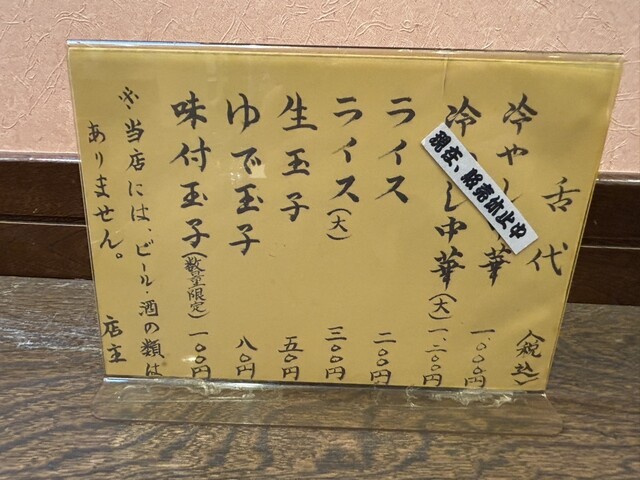 舌代
(税込)
冷やし 華 一、〇〇〇円
冷 し中華(大) 一、二〇〇円
現在、販売休止中
ライス 二〇〇円
ライス(大) 三〇〇円
生玉子 五〇円
ゆで玉子 八〇円
味付玉子(数量限定) 一〇〇円
※当店には、ビール・酒の類は
ありません。 店主